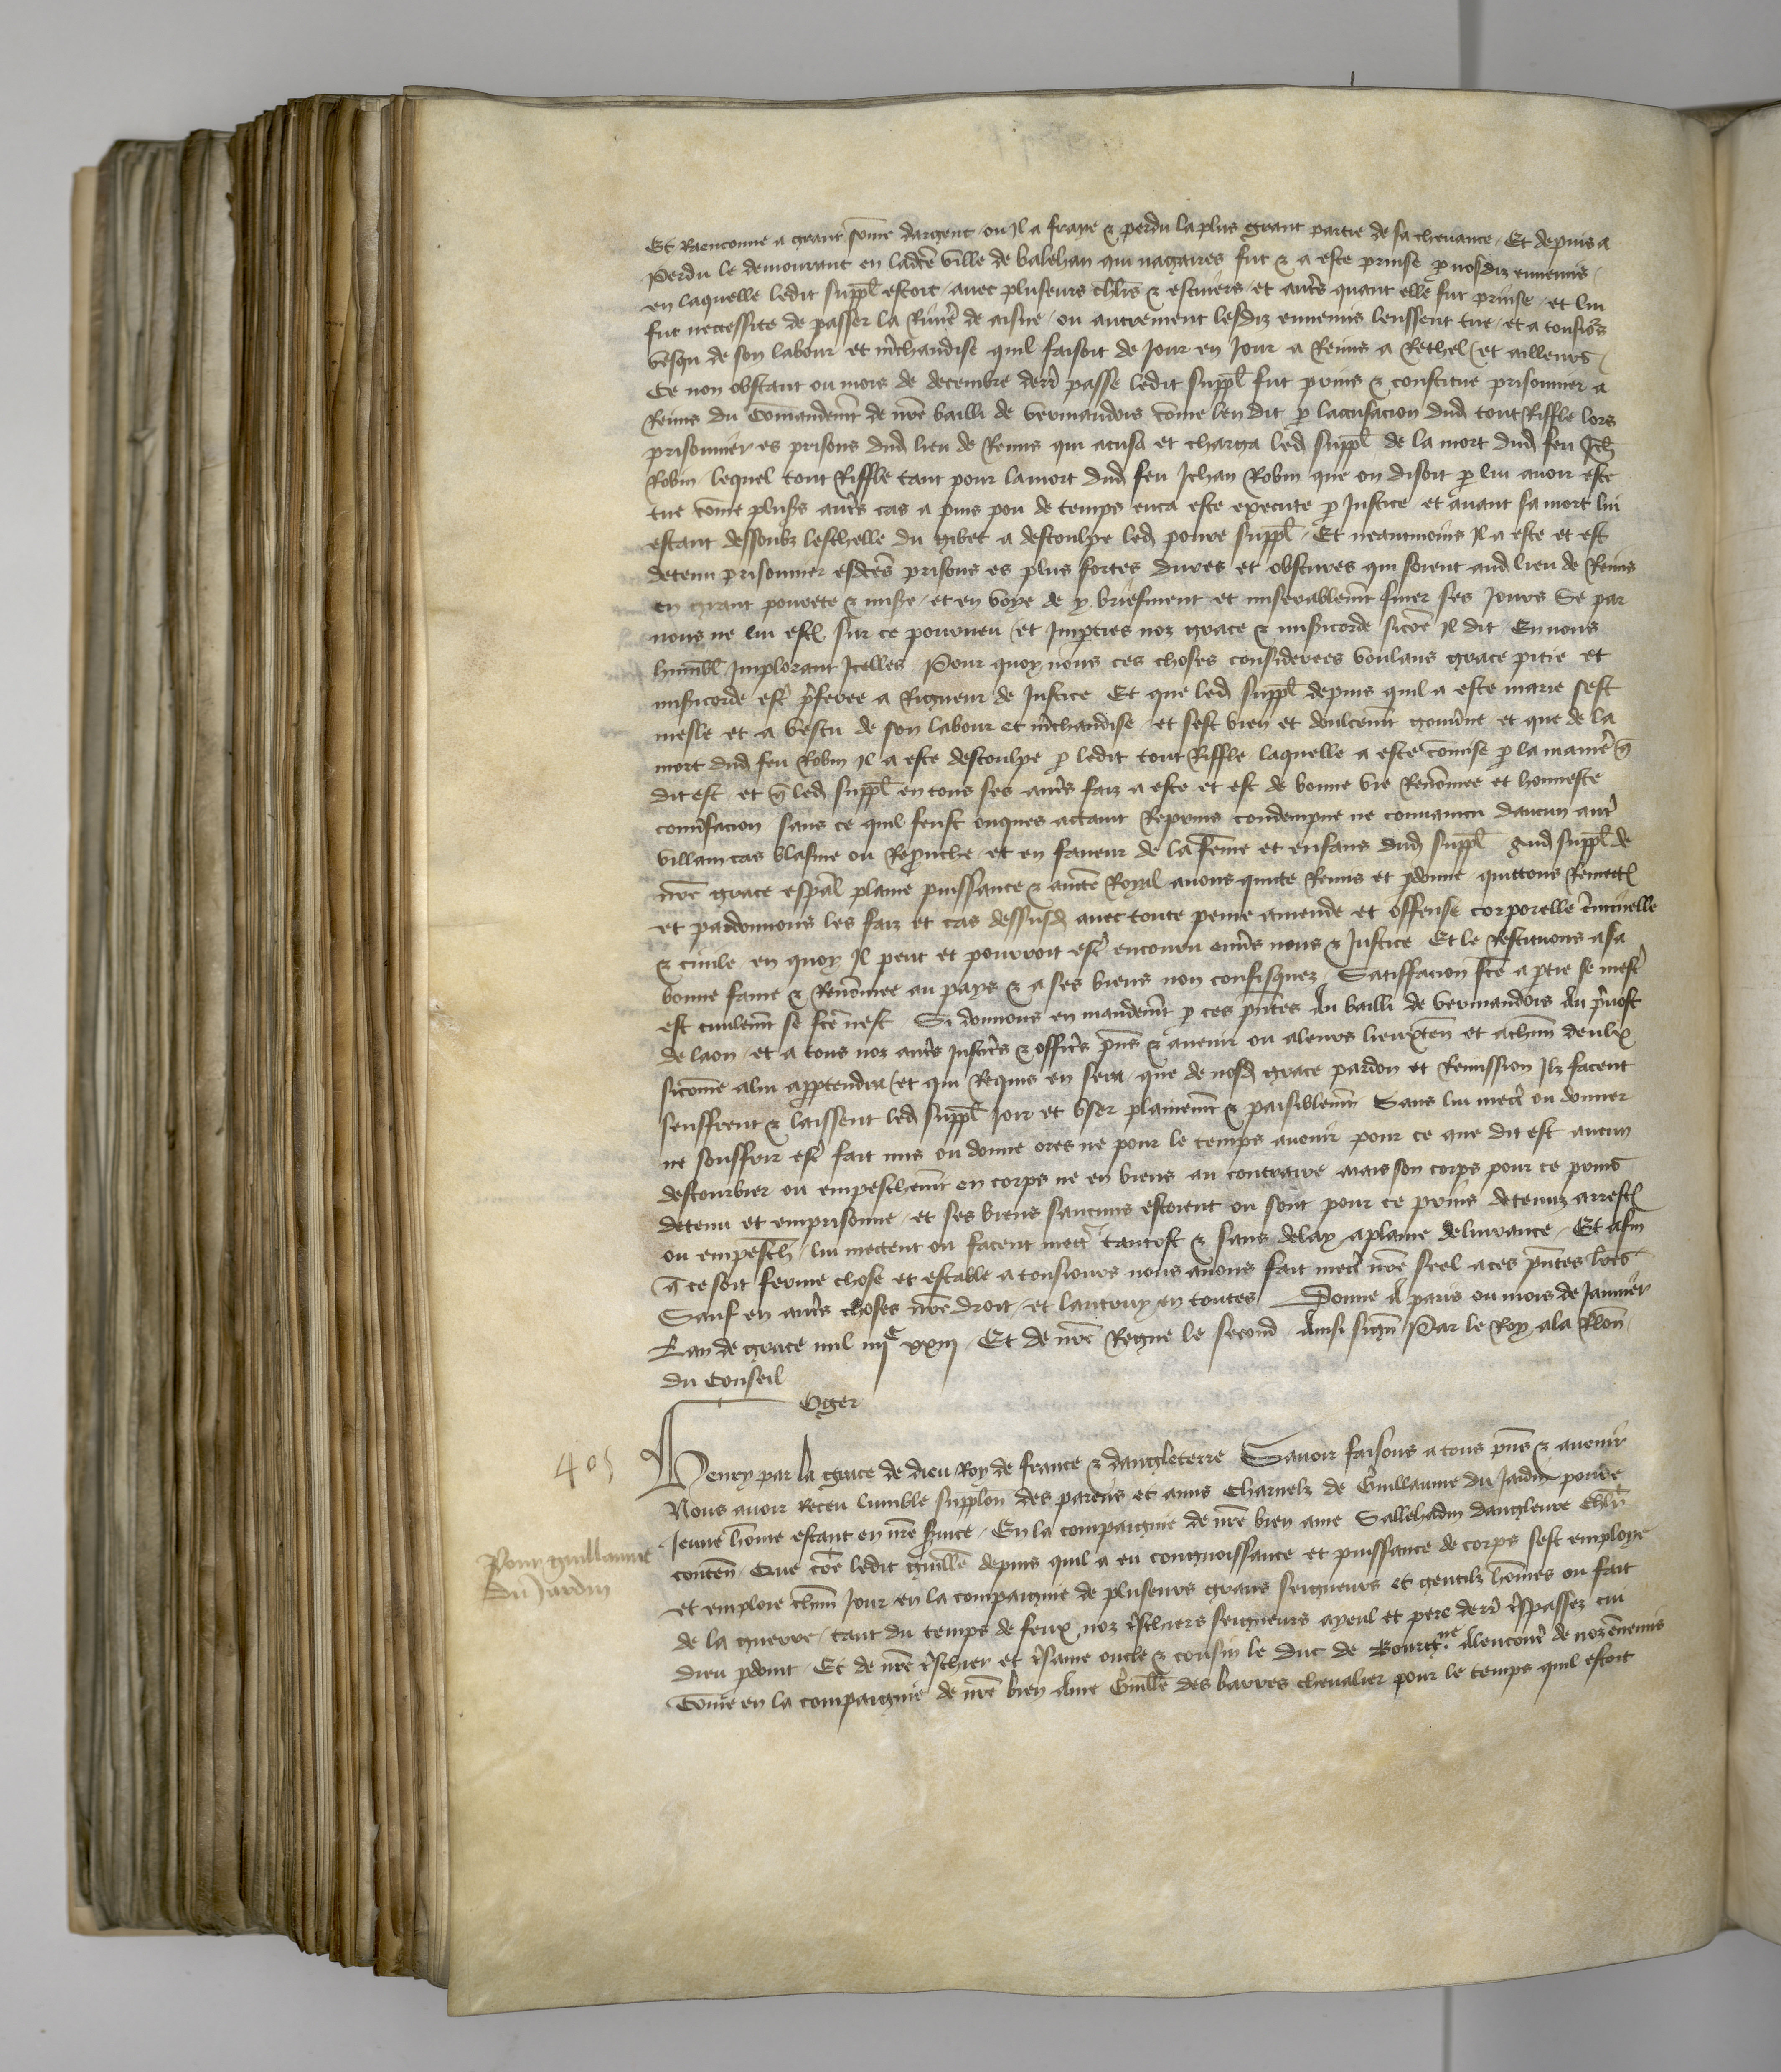 Et Raenconne a grant some dargent ou Il a fraye & perdu la plus grant partie de sa chevance / Et depuis a
Perdu le demourant en ladce ville de balehan qui nagaires fut & a este prinse p nosdiz ennemis /
en laquelle ledit suppl estoit / avec pluseurs chlrs & escuiers / et autrs quant elle fut prinse / et lui
fut neccessite de passer la Rivie de aisne / ou autrement lesdiz ennemis leussent tue / et a tousiors
vescu de son labour et mchandise quil faisoit de Jour en Jour a Reims a Rethel / et ailleurs /
Ce non obstant ou mois de decembre derr passe ledit suppl fut prins & constitue prisonnier a
Reims du Comandemt de nre bailli de vermandois come len dit p lacusacion dud tout Riffle lors
prisonnier es prisons dud lieu de Reims qui acusa et charga led suppl de la mort dud feu Jeh
Robin / lequel tout Riffle tant pour la mort dud feu Jehan Robin que on disoit p lui avoir este
tue come plusrs autrs cas a puis pou de temps enca este execute p Justice / et avant sa mort lui
estant dessoubz leschelle du gibet a descoulpe led povre suppl / Et neantmoins Il a este et est
detenu prisonnier esdces prisons es plus fortes dures et obscures qui soient aud lieu de Reims
en grant povrete & misere / et en voye de y briefment et miserablemt finer ses Jours Se par
nous ne lui est sur ce pourveu / et Imparties noz grace & misicorde sicoe Il dit / En nous
humbl Implorant Icelles / Pour quoy nous ces choses considerees voulans grace pitie et
misicorde estr pferee a Rigueur de Justice Et que led suppl depuis quil a este marie sest
mesle et a vescu de son labour et mchandise / et sest bien et doulcemt gouvne et que de la
mort dud feu Robin Il a este descoulpe p ledit tout Riffle laquelle a este comise p la manie q
dit est / et q led suppl en tous ses autrs faiz a este et est de bonne vie Renomee et honneste
convsacion sans ce quil feust onques actaint Reprins condempne ne convaincu daucun autr
villain cas blasme ou Reprouche / et en faveur de la feme et enfans dud suppl aud suppl de
nre grace espal plaine puissance & aucte Royal avons quicte Remis et pdonne quictons Remectons
et pardonnons les faiz et cas dessusd avec toute peine amende et offense corporelle criminelle
& civile en quoy Il peut et pourroit estr encouru envrs nous & Justice Et le Restituons a sa
bonne fame & Renommee au pays & a ses biens non confisquez / Satiffacion fce a ptie se mestr
est civilemt se fce nest Si donnons en mandemt p ces pntes Au bailli de vermandois Au pvost
de laon / et a tous noz autrs Justicrs & officrs pns & avenir ou a leurs lieuxten et achun deulx
sicome a lui appartendra / et qui Requis en sera / que de nosd grace pardon et Remission Ilz facent
seuffrent & laissent led suppl Joir et user plainemt & paisiblemt Sans lui mectr ou donner
ne souffrir estr fait mis ou donne ores ne pour le temps avenir pour ce que dit est aucun
destourbier ou empeschemt en corps ne en biens au contraire mais son corps pour ce prins
detenu et emprisonne / et ses biens saucuns estoient ou sont pour ce prins detenuz arrest
ou empesch / lui mectent ou facent mectr tantost & sans delay a plaine delivrance / Et afin
q ce soit ferme chose et estable a tousiours nous avons fait mectr nre seel a ces pntes lres
Sauf en autrs choses nre droit / et lautruy en toutes Donne A paris ou mois de Janvier
Lan de grace mil iiijc xxiij / Et de nre Regne le second / Ainsi signe Par le Roy a la Relon
du Conseil
Oger
405
Henry par la grace de dieu Roy de france & dangleterre Savoir faisons a tous pns & avenir
Nous avoir receu lumble supplon des parens et amis charnelz de Guillaume du Jardin povre
Jeune home estant en nre svice / En la compaignie de nre bien ame Sallehadin dangleure chlr
Pour guillaume
du Jardin
conten / Que coe ledit guille depuis quil a eu congnoissance et puissance de corps sest emploie
et emploie chun Jour en la compaignie de pluseurs grans seigneurs et gentilz homes ou fait
de la guerre / tant du temps de feux noz tschiers seigneurs ayeul et pere derr tspassez cui
dieu pdoint / Et de nre tschier et tsame oncle & cousin le duc de Bourgne Alencontr de noz ennemis
Come en la compaignie de nre bien Ame Guille des barres chevalier pour le temps quil estoit